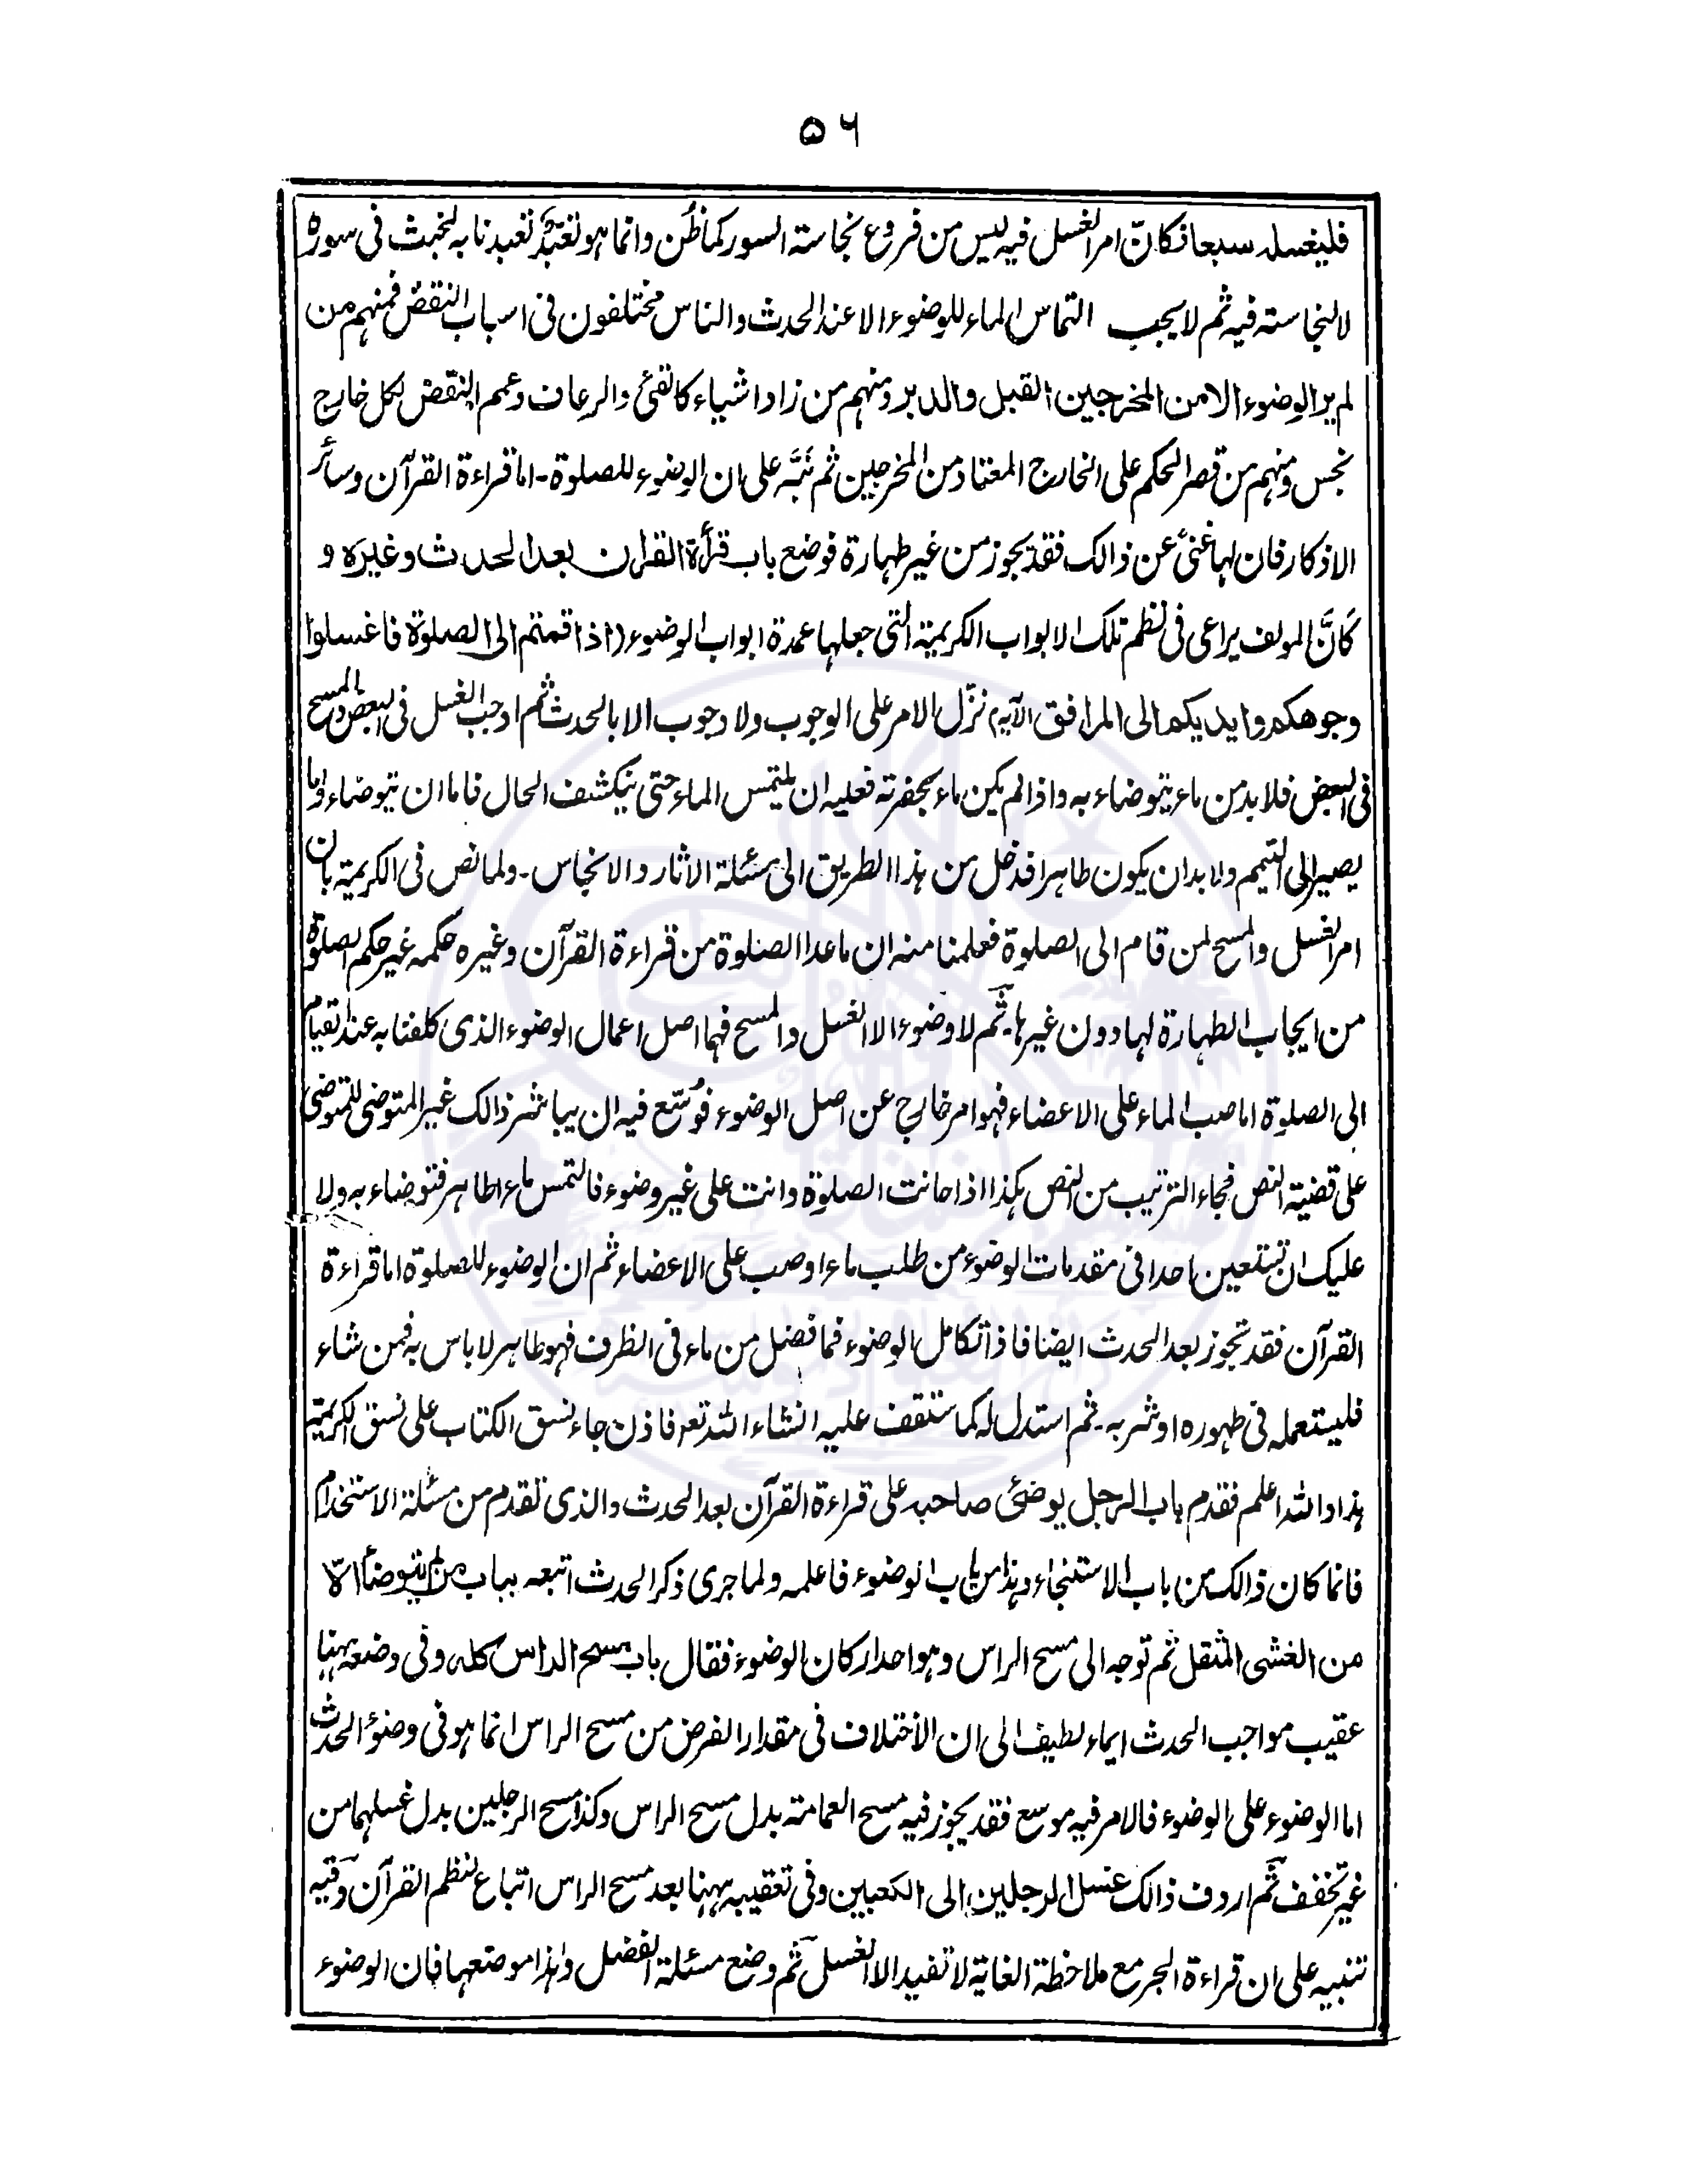 ۵۶
فليغسله سبعا فكانّ امر الغسل فيه ليس من فروع نجاسة السور كما ظُن وانما هو تعبّدٌ تعبدنا به لخبث في سوره
لا لنجاسته فيه ثم لا يجب التماس الماء للوضوء الا عند الحدث والناس مختلفون فى اسباب النقض فمنهم من
لم ير الوضوء الا من المخرجين القبل والدبر ومنهم من زاد اشياء كالقئ والرعاف وعمم النقض لكل خارج
نجس ومنهم من قصر الحكم على الخارج المعتاد من المخرجين ثم نَبَّه على ان الوضوء للصلوة - اما قراءة القرآن وسائر
الاذكار فان لها غنىً عن ذالك فقد يجوز من غير طهارة فوضع باب قرأة القران بعد الحدث وغيره و
كَانَّ المولف يراعى فى نظم تلك الابواب الكريمة التى جعلها عمدة ابواب الوضوء (اذا قمتم الى الصلوة فاغسلوا
وجوهكم وايديكم الى المرافق الآية) نزّل الامر على الوجوب ولا وجوب الا بالحدث ثم اوجب الغسل فى البعض والمسح
فى البعض فلا بد من ماء يتوضاء به واذا لم يكن ماء بحضرته فعليه ان يلتمس الماء حتى ينكشف الحال فاما ان يتوضاء واما
يصير الى التيمم ولا بد ان يكون طاهرا فدخل من هذا الطريق الى مسئلة الاثار والانجاس - ولما نص فى الكريمة بان
امر الغسل والمسح لمن قام الى الصلوة فعلمنا منه ان ما عدا الصلوة من قراءة القرآن وغيره حكمه غير حكم الصلوة
من ايجاب الطهارة لها دون غيرها - ثم لا وضوء الا الغسل والمسح فهما اصل اعمال الوضوء الذى كلفنا به عند القيام
الى الصلوة اما صب الماء على الاعضاء فهو امر خارج عن اصل الوضوء فوُسّع فيه ان يباشر ذالك غير المتوضى للمتوضى
على قضية النص فجاء الترتيب من النص هكذا اذا حانت الصلوة وانت على غير وضوء فالتمس ماء طاهر فتوضاء به ولا
عليك ان تستعين احدا فى مقدمات الوضوء من طلب ماء او صب على الاعضاء ثم ان الوضوء للصلوة اما قراءة
القرآن فقد تجوز بعد الحدث ايضا فاذا تكامل الوضوء فما فضل من ماء فى الظرف فهو طاهر لا باس به فمن شاء
فليستعمله فى طهوره او شربه - ثم استدل له كما ستقف عليه انشاء الله تعر فاذن جاء نسق الكتاب على نسق الكريمة
هذا والله اعلم فقدم باب الرجل يوضئ صاحبه على قراءة القرآن بعد الحدث والذى تقدم من مسئلة الاستخدام
فانما كان ذالك من باب الاستنجاء وهذا من باب الوضوء فاعلمه ولما جرى ذكر الحدث اتبعه بباب من لم يتوضأ الّا
من الغشى المثقل ثم توجه الى مسح الراس وهو احد اركان الوضوء فقال باب مسح الراس كله وفى وضعه ههنا
عقيب مواجب الحدث ايماء لطيف الى ان الاختلاف فى مقدار الفرض من مسح الراس انما هو فى وضوء الحدث
اما الوضوء على الوضوء فالامر فيه موسع فقد يجوز فيه مسح العمامة بدل مسح الراس وكذا مسح الرجلين بدل غسلهما من
غير تخفف ثم اردف ذالك غسل الرجلين الى الكعبين وفى تعقيبه ههنا بعد مسح الراس اتباع لنظم القرآن وفيه
تنبيه على ان قراءة الجر مع ملاحظة الغاية لا تفيد الا الغسل ثم وضع مسئلة الفضل وهذا موضعها فان الوضوء